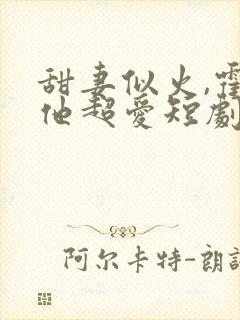 甜妻似火,霍
他超愛短劇
阿尔卡特-朗